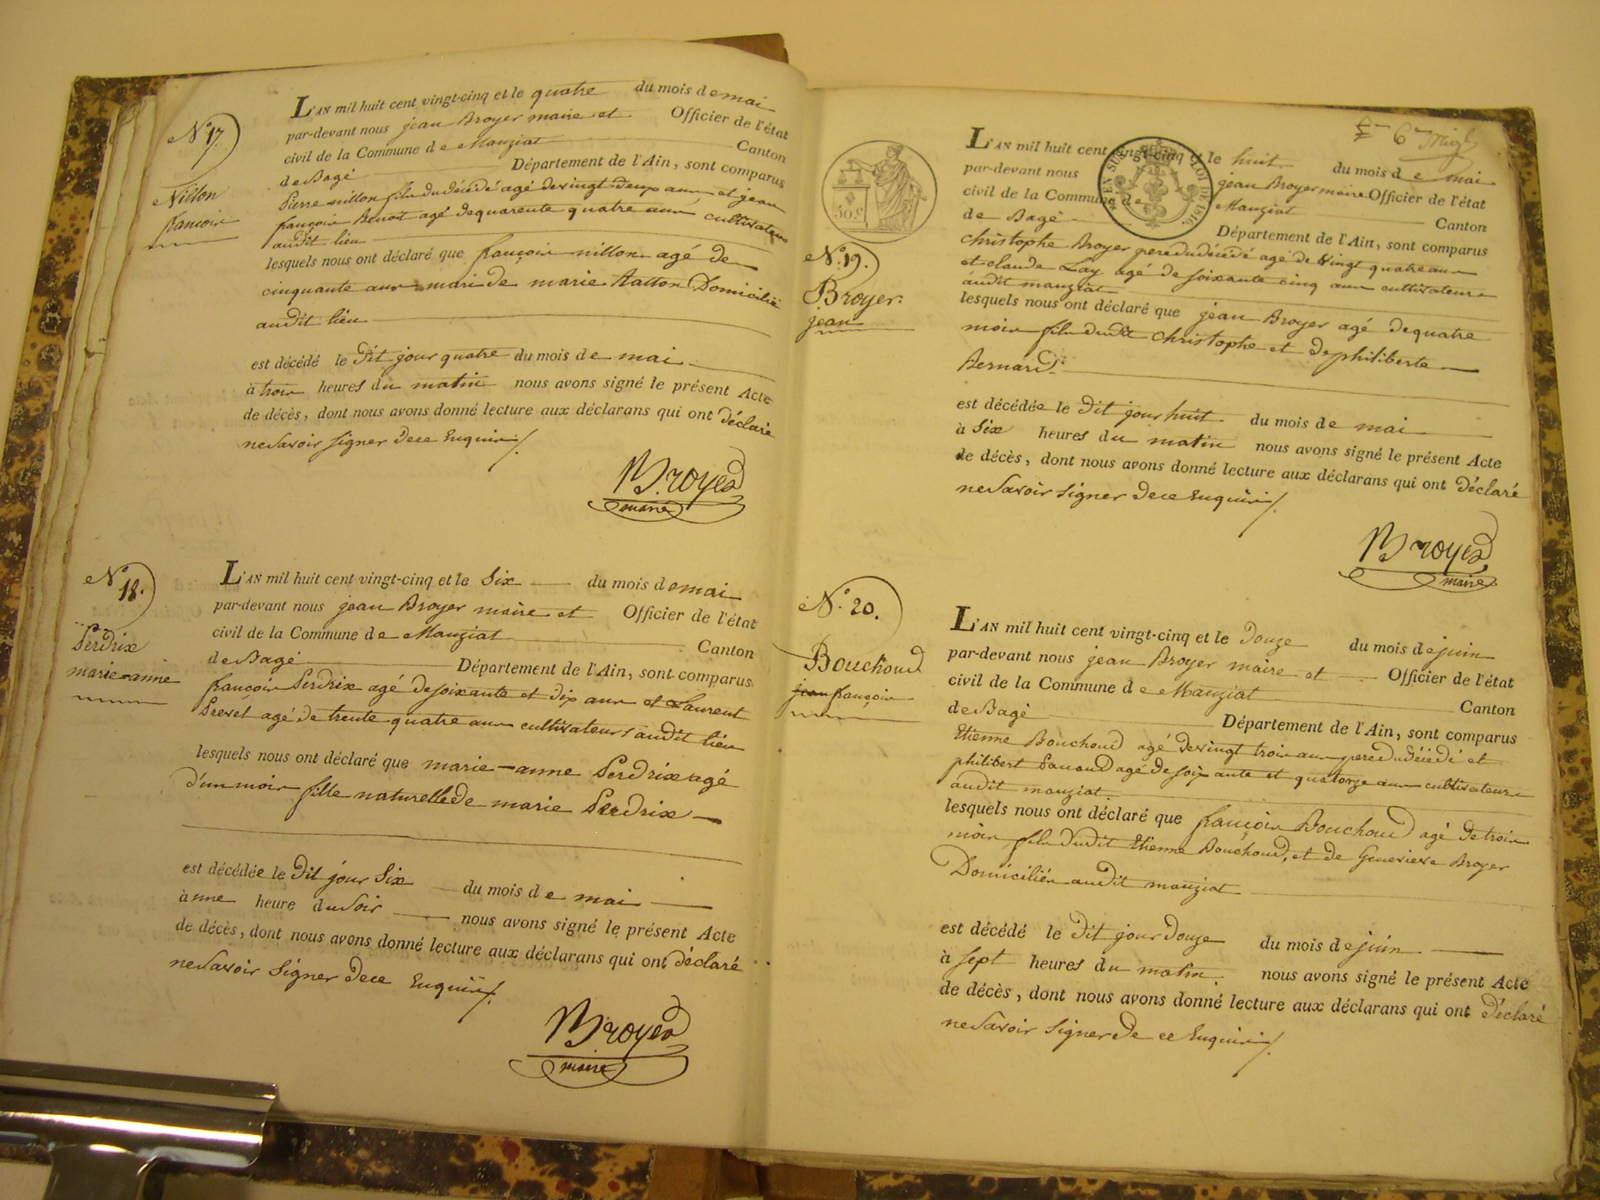 N° 17.
Nillon
françois
L'AN mil huit cent vingt-cinq et le quatre du mois de mai
par-devant nous jean Broyer maire et Officier de l'état
civil de la Commune de Manziat Canton
de Bagé Département de l'Ain, sont comparus
Pierre nillon fils du décédé agé de vingt deux ans et jean
françois Benoit agé de quarente quatre ans cultivateurs
audit lieu
lesquels nous ont déclaré que françois nillon agé de
cinquante ans mari de marie Domicilié
audit lieu
est décédé le dit jour quatre du mois de mai
à trois heures du matin nous avons signé le présent Acte
de décès, dont nous avons donné lecture aux déclarans qui ont déclaré
ne savoir signer de ce Enquis
Broyer
maire
N° 18.
Perdrix
marie-anne
L'AN mil huit cent vingt-cinq et le Six du mois de mai
par-devant nous jean Broyer maire et Officier de l'état
civil de la Commune de Manziat Canton
de Bagé Département de l'Ain, sont comparus
françois Perdrix agé de soixante et dix ans et Laurent
Prevel agé de trente quatre ans cultivateurs audit lieu
lesquels nous ont déclaré que marie-anne Perdrix agé
d'un mois fille naturelle de marie Perdrix
est décédée le dit jour Six du mois de mai
à une heure du soir nous avons signé le présent Acte
de décès, dont nous avons donné lecture aux déclarans qui ont déclaré
ne savoir signer de ce Enquis
Broyer
maire
6
50 c
N° 19.
Broyer
jean
L'AN mil huit cent vingt-cinq et le huit du mois de mai
par-devant nous jean Broyer maire Officier de l'état
civil de la Commune de Manziat Canton
de Bagé Département de l'Ain, sont comparus
Christophe Broyer pere du décédé agé de Vingt quatre ans
et claude Lay agé de soixante cinq ans cultivateurs
audit manziat
lesquels nous ont déclaré que jean Broyer agé de quatre
mois fils dudit Christophe et de philiberte
Bernard
est décédée le dit jour huit du mois de mai
à Six heures du matin nous avons signé le présent Acte
de décès, dont nous avons donné lecture aux déclarans qui ont déclaré
ne savoir signer de ce Enquis
Broyer
maire
N° 20.
Bouchoud
jean françois
L'AN mil huit cent vingt-cinq et le Douze du mois de juin
par-devant nous jean Broyer maire et Officier de l'état
civil de la Commune de Manziat Canton
de Bagé Département de l'Ain, sont comparus
Etienne Bouchoud agé de vingt trois ans pere du décédé et
philibert agé de soixante et quatorze ans cultivateurs
audit manziat
lesquels nous ont déclaré que françois Bouchoud agé de trois
mois fils dudit Etienne Bouchoud, et de Genevieve Broyer
Domiciliés audit manziat
est décédé le dit jour Douze du mois de juin
à sept heures du matin nous avons signé le présent Acte
de décès, dont nous avons donné lecture aux déclarans qui ont déclaré
ne savoir signer de ce Enquis